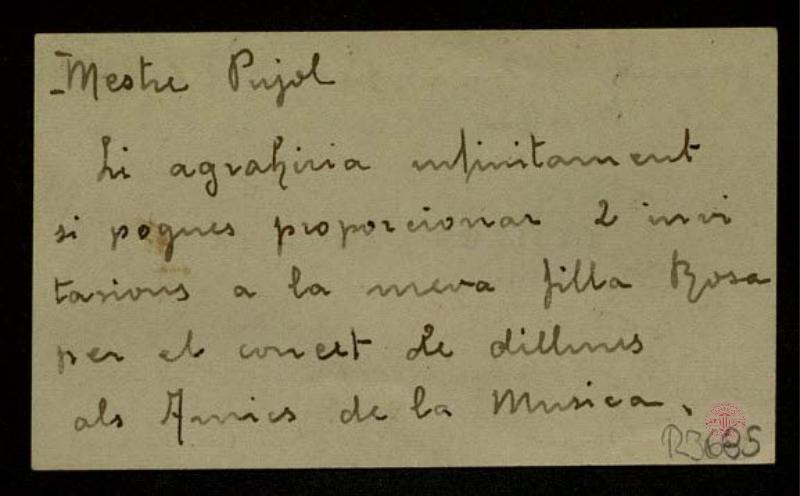 Mestre Pujol
Li agrahiria infinitament
si pogues proporcionar 2 invi
tasions a la meva filla Rosa
per el concet de dilluns
als Amics de la Musica.
R3685